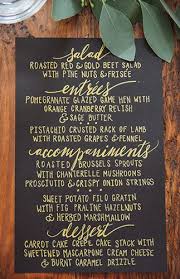 salad
ROASTED RED & GOLD BEET SALAD
WITH PINE NUTS & FRISÉE
entrées
POMEGRANATE GLAZED GAME HEN WITH
ORANGE CRANBERRY RELISH
& SAGE BUTTER
PISTACHIO CRUSTED RACK OF LAMB
WITH ROASTED GRAPES & FENNEL
accompaniments
ROASTED BRUSSELS SPROUTS
WITH CHANTERELLE MUSHROOMS
PROSCIUTTO & CRISPY ONION STRINGS
SWEET POTATO FILO GRATIN
WITH FIG PRALINE HAZELNUTS
& HERBED MARSHMALLOW
dessert
CARROT CAKE CREPE CAKE STACK WITH
SWEETENED MASCARPONE CREAM CHEESE
& BURNT CARAMEL DRIZZLE